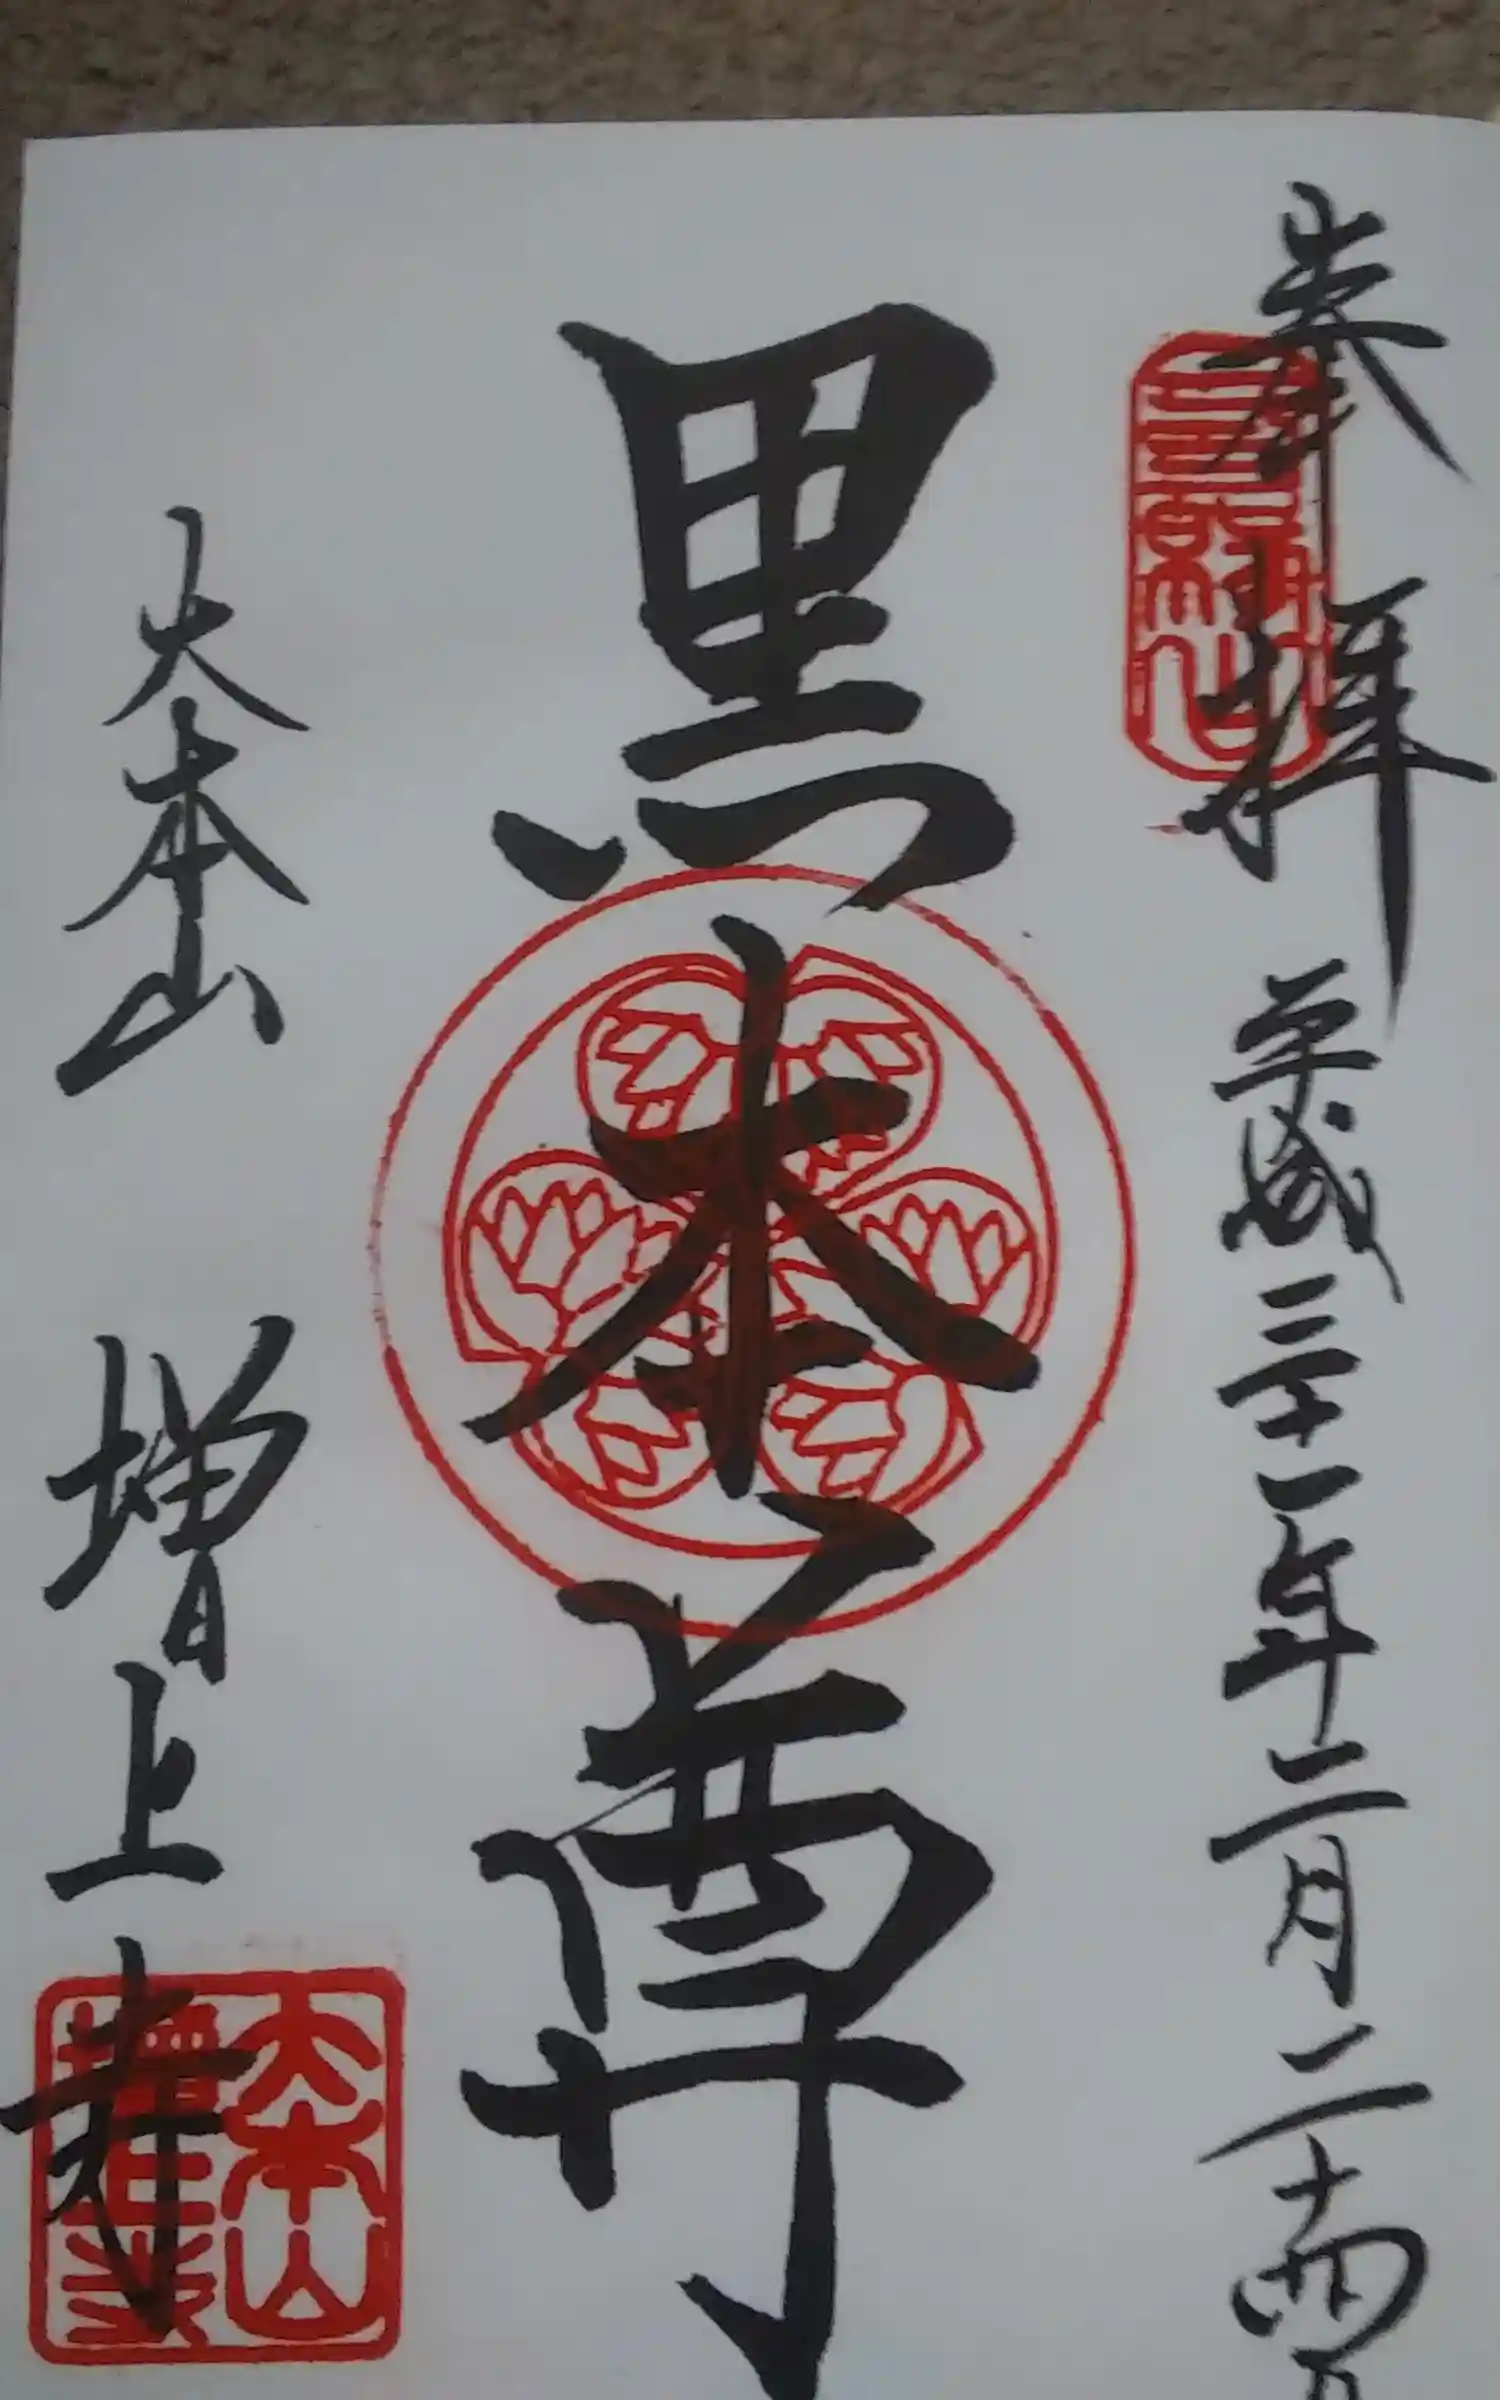 奉拝 平成三十一年二月二十四日
黒本尊
大本山 増上寺
大本山増上寺